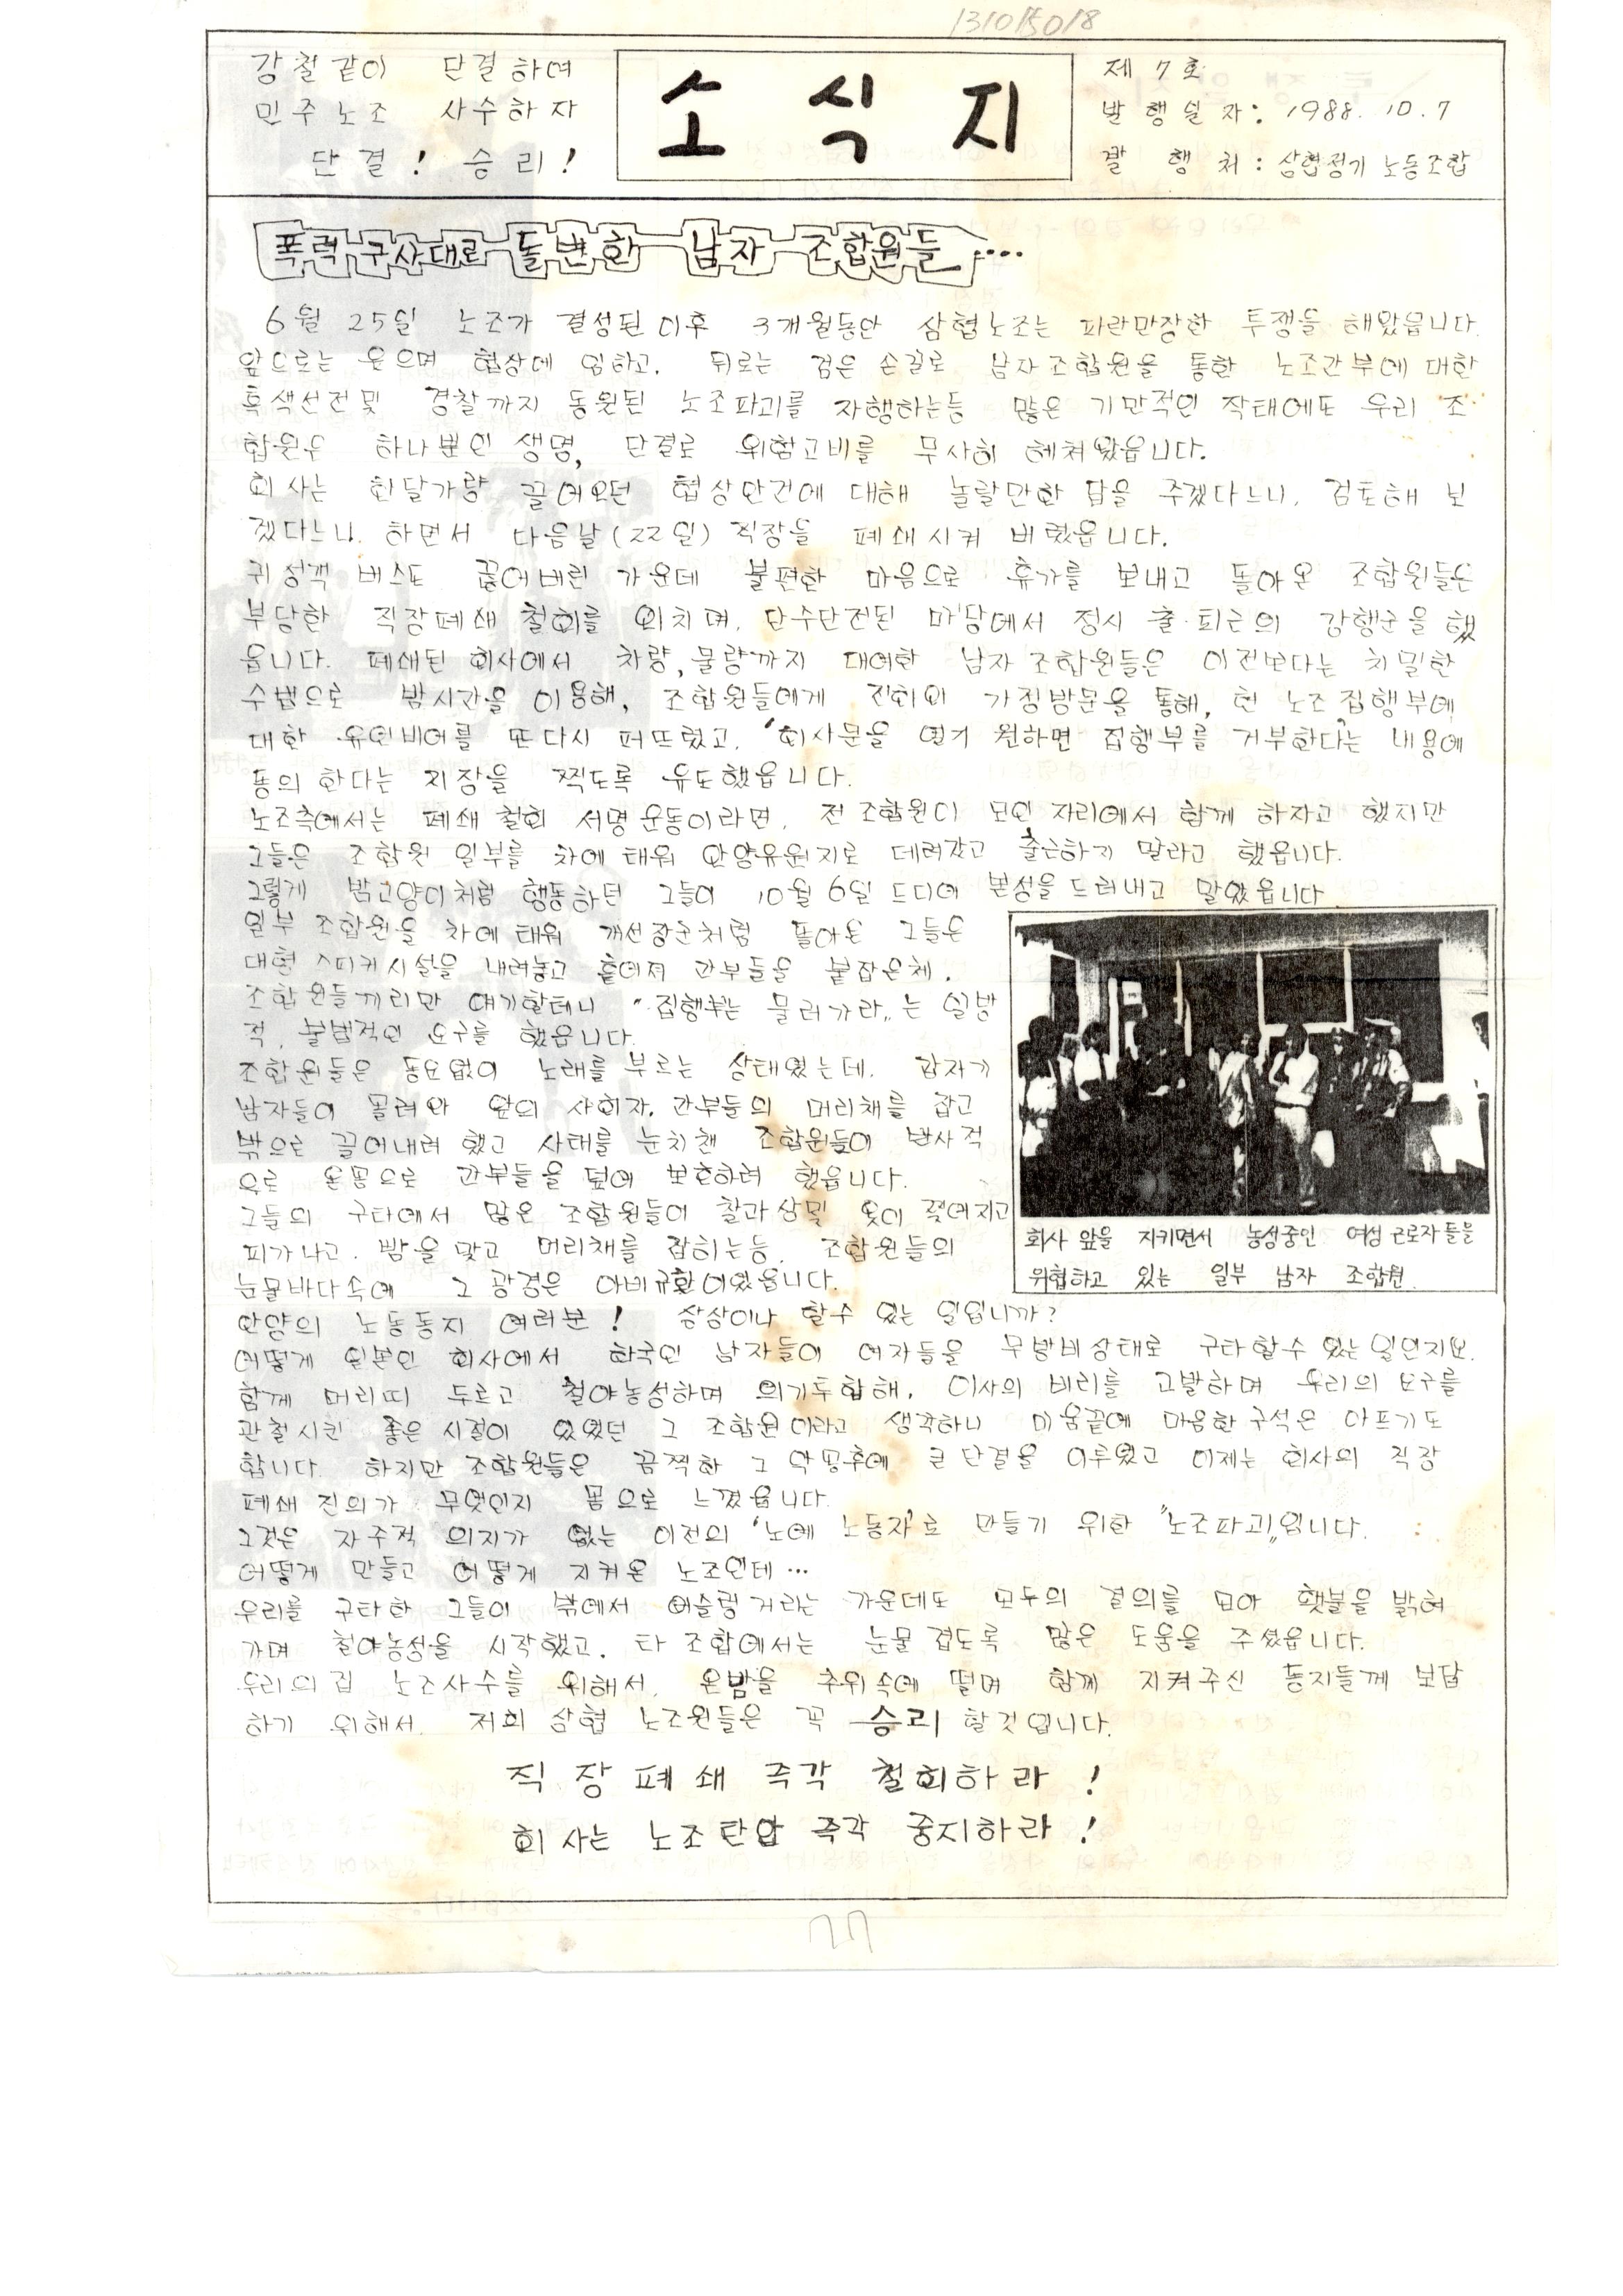 131015018
강철같이 단결하여
민주노조 사수하자
단결! 승리!
소식지
제 7호
발행일자: 1988. 10. 7
발행처: 삼협정기 노동조합
폭력구사대로 돌변한 남자 조합원들...
6월 25일 노조가 결성된 이후 3개월동안 삼협노조는 파란만장한 투쟁을 해왔읍니다.
앞으로는 웃으며 협상에 임하고, 뒤로는 검은 손길로 남자조합원을 통한 노조간부에 대한
흑색선전및 경찰까지 동원된 노조파괴를 자행하는등 많은 기만적인 작태에도 우리 조
합원은 하나뿐인 생명, 단결로 위험고비를 무사히 헤쳐왔읍니다.
회사는 한달가량 끌어오던 협상안건에 대해 놀랄만한 답을 주겠다느니, 검토해 보
겠다느니, 하면서 다음날(22일) 직장을 폐쇄시켜 버렸읍니다.
귀성객 버스도 끊어버린 가운데 불편한 마음으로 휴가를 보내고 돌아온 조합원들은
부당한 직장폐쇄 철회를 외치며, 단수단전된 마당에서 정시 출·퇴근의 강행군을 했
읍니다. 폐쇄된 회사에서 차량, 물량까지 대여한 남자조합원들은 이전보다는 치밀한
수법으로 밤시간을 이용해, 조합원들에게 전화와 가정방문을 통해, 현 노조 집행부에
대한 유언비어를 또다시 퍼뜨렸고, '회사문을 열기 원하면 집행부를 거부한다'는 내용에
동의 한다는 지장을 찍도록 유도했읍니다.
노조측에서는 폐쇄철회 서명운동이라면, 전 조합원이 모인 자리에서 함께 하자고 했지만
그들은 조합원 일부를 차에 태워 안양유원지로 데려갔고 출근하지 말라고 했읍니다.
그렇게 밤고양이처럼 행동하던 그들이 10월 6일 드디어 본성을 드러내고 말았읍니다
일부 조합원을 차에 태워 개선장군처럼 돌아온 그들은
대형 스피커시설을 내려놓고 흩어져 간부들을 붙잡은체,
조합원들끼리만 얘기할테니 "집행부는 물러가라"는 일방
적, 불법적인 요구를 했읍니다.
조합원들은 동요없이 노래를 부르는 상태였는데, 갑자기
남자들이 몰려와 앞의 사회자, 간부들의 머리채를 잡고
밖으로 끌어내려 했고 사태를 눈치챈 조합원들이 반사적
으로 온몸으로 간부들을 덮어 보호하려 했읍니다.
그들의 구타에서 많은 조합원들이 찰과상및 옷이 찢어지고
피가 나고, 뺨을 맞고 머리채를 잡히는등, 조합원들의
눈물바다속에 그 광경은 아비규환이었읍니다.
회사 앞을 지키면서 농성중인 여성 근로자들을
위협하고 있는 일부 남자 조합원.
안양의 노동동지 여러분! 상상이나 할수 있는 일입니까?
어떻게 일본인 회사에서 한국인 남자들이 여자들을 무방비상태로 구타할수 있는 일인지요.
함께 머리띠 두르고 철야농성하며 의기투합해, 이사의 비리를 고발하며 우리의 요구를
관철시킨 좋은 시절이 있었던 그 조합원이라고 생각하니 미움끝에 마음한구석은 아프기도
합니다. 하지만 조합원들은 끔찍한 그 악몽후에 큰 단결을 이루었고 이제는 회사의 직장
폐쇄 진의가 무엇인지 몸으로 느꼈읍니다.
그것은 자주적 의지가 없는 이전의 '노예 노동자'로 만들기 위한 "노조파괴"입니다.
어떻게 만들고 어떻게 지켜온 노조인데...
우리를 구타한 그들이 밖에서 어슬렁거리는 가운데도 모두의 결의를 모아 횃불을 밝혀
가며 철야농성을 시작했고, 타 조합에서는 눈물겹도록 많은 도움을 주셨읍니다.
우리의집 노조사수를 위해서, 온밤을 추위속에 떨며 함께 지켜주신 동지들께 보답
하기 위해서, 저희 삼협 노조원들은 꼭 승리 할것입니다.
직장폐쇄 즉각 철회하라!
회사는 노조탄압 즉각 중지하라!